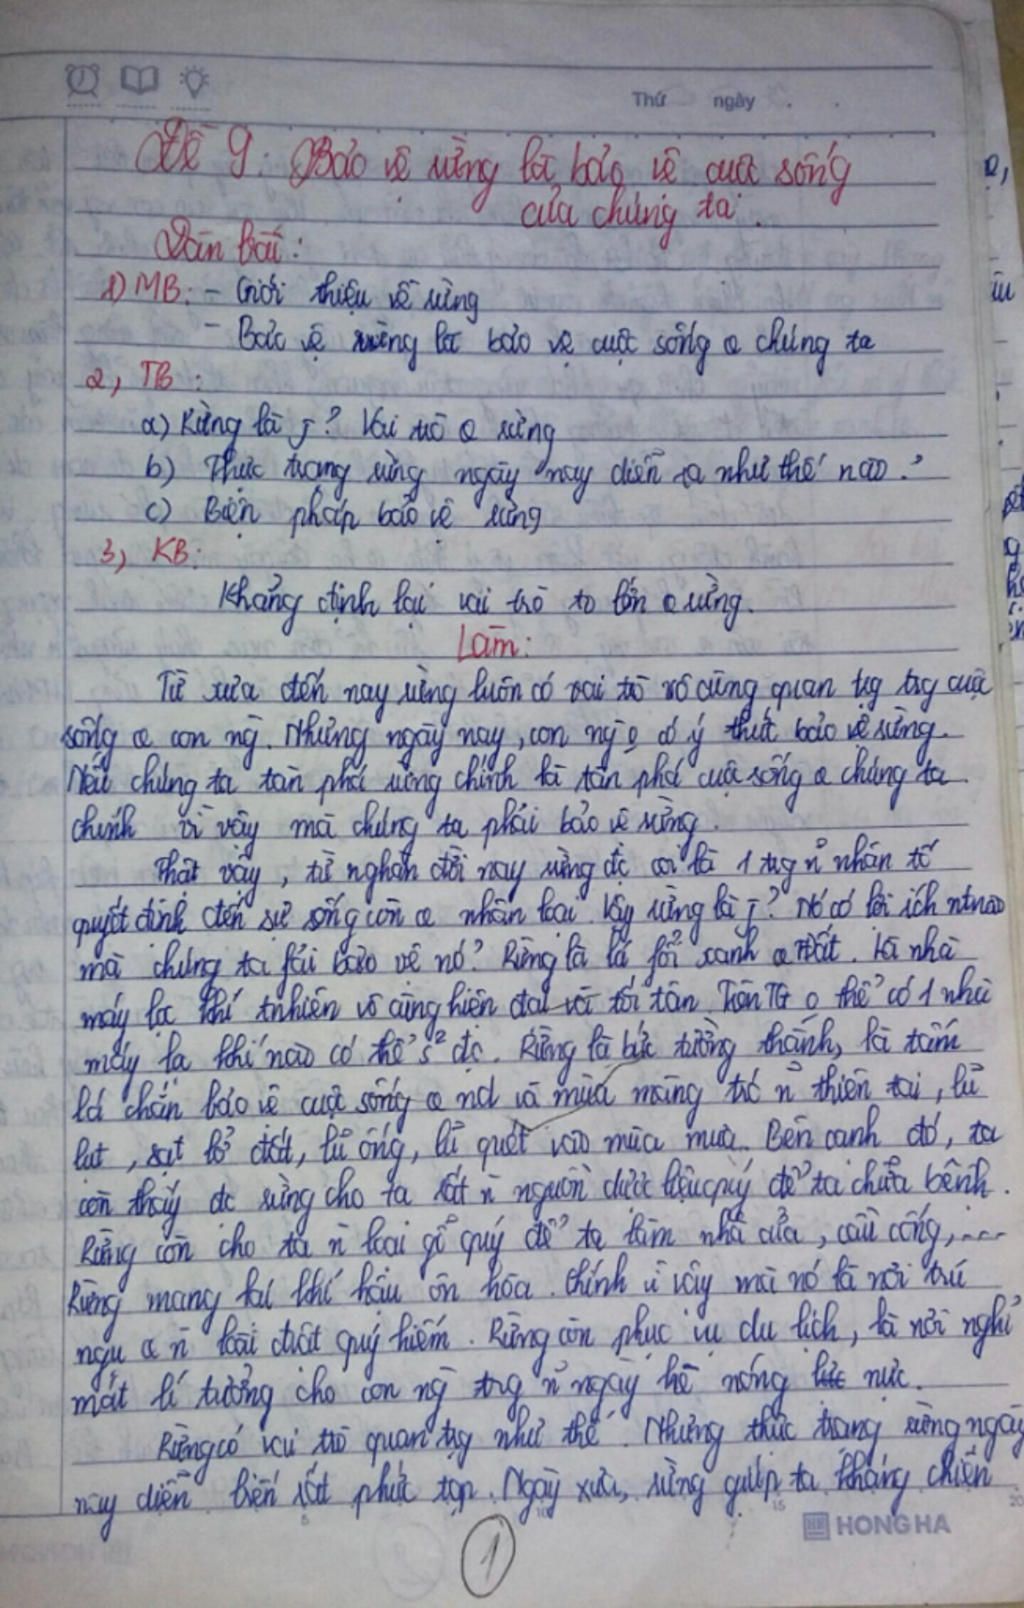 Thứ ngày
Đề 9: Bảo vệ rừng là bảo vệ cuộc sống
của chúng ta.
Dàn bài:
1) MB: - Giới thiệu về rừng
- Bảo vệ rừng là bảo vệ cuộc sống c chúng ta
2, TB:
a) Rừng là j? Vai trò c rừng
b) Thực trạng rừng ngày nay diễn ra như thế nào?
c) Biện pháp bảo vệ rừng
3, KB:
Khẳng định lại vai trò to lớn c rừng.
Làm:
Từ xưa đến nay rừng luôn có vai trò vô cùng quan trg trg cuộc
sống c con ng. Nhưng ngày nay, con ng o có ý thức bảo vệ rừng.
Nếu chúng ta tàn phá rừng chính là tàn phá cuộc sống c chúng ta
chính vì vậy mà chúng ta phải bảo vệ rừng.
Thật vậy, từ nghàn đời nay rừng đc coi là 1 trg n~ nhân tố
quyết định đến sự sống còn c nhân loại. Vậy rừng là j? Nó có lợi ích ntnào
mà chúng ta fải bảo vệ nó? Rừng là lá fổi xanh c TĐất. Là nhà
máy lọc khí tnhiên vô cùng hiện đại và tối tân. Trên TG o thể có 1 nhà
máy lọc khí nào có thể s² đc. Rừng là bức tường thành, là tấm
lá chắn bảo vệ cuộc sống c nd và mùa màng trc n~ thiên tai, lũ
lụt, sạt lở đất, lũ ống, lũ quét vào mùa mưa. Bên cạnh đó, ta
còn thấy đc rừng cho ta rất n` nguồn dược liệu quý để ta chữa bệnh.
Rừng còn cho ta n` loại gỗ quý để ta làm nhà cửa, cầu cống,....
Rừng mang lại khí hậu ôn hòa. Chính vì vậy mà nó là nơi trú
ngụ c n` loài đvật quý hiếm. Rừng còn phục vụ du lịch, là nơi nghỉ
mát lí tưởng cho con ng trg n~ ngày hè nóng nực.
Rừng có vai trò quan trg như thế. Nhưng thực trạng rừng ngày
nay diễn biến rất phức tạp. Ngày xưa, rừng giúp ta kháng chiến
HONG HA
1